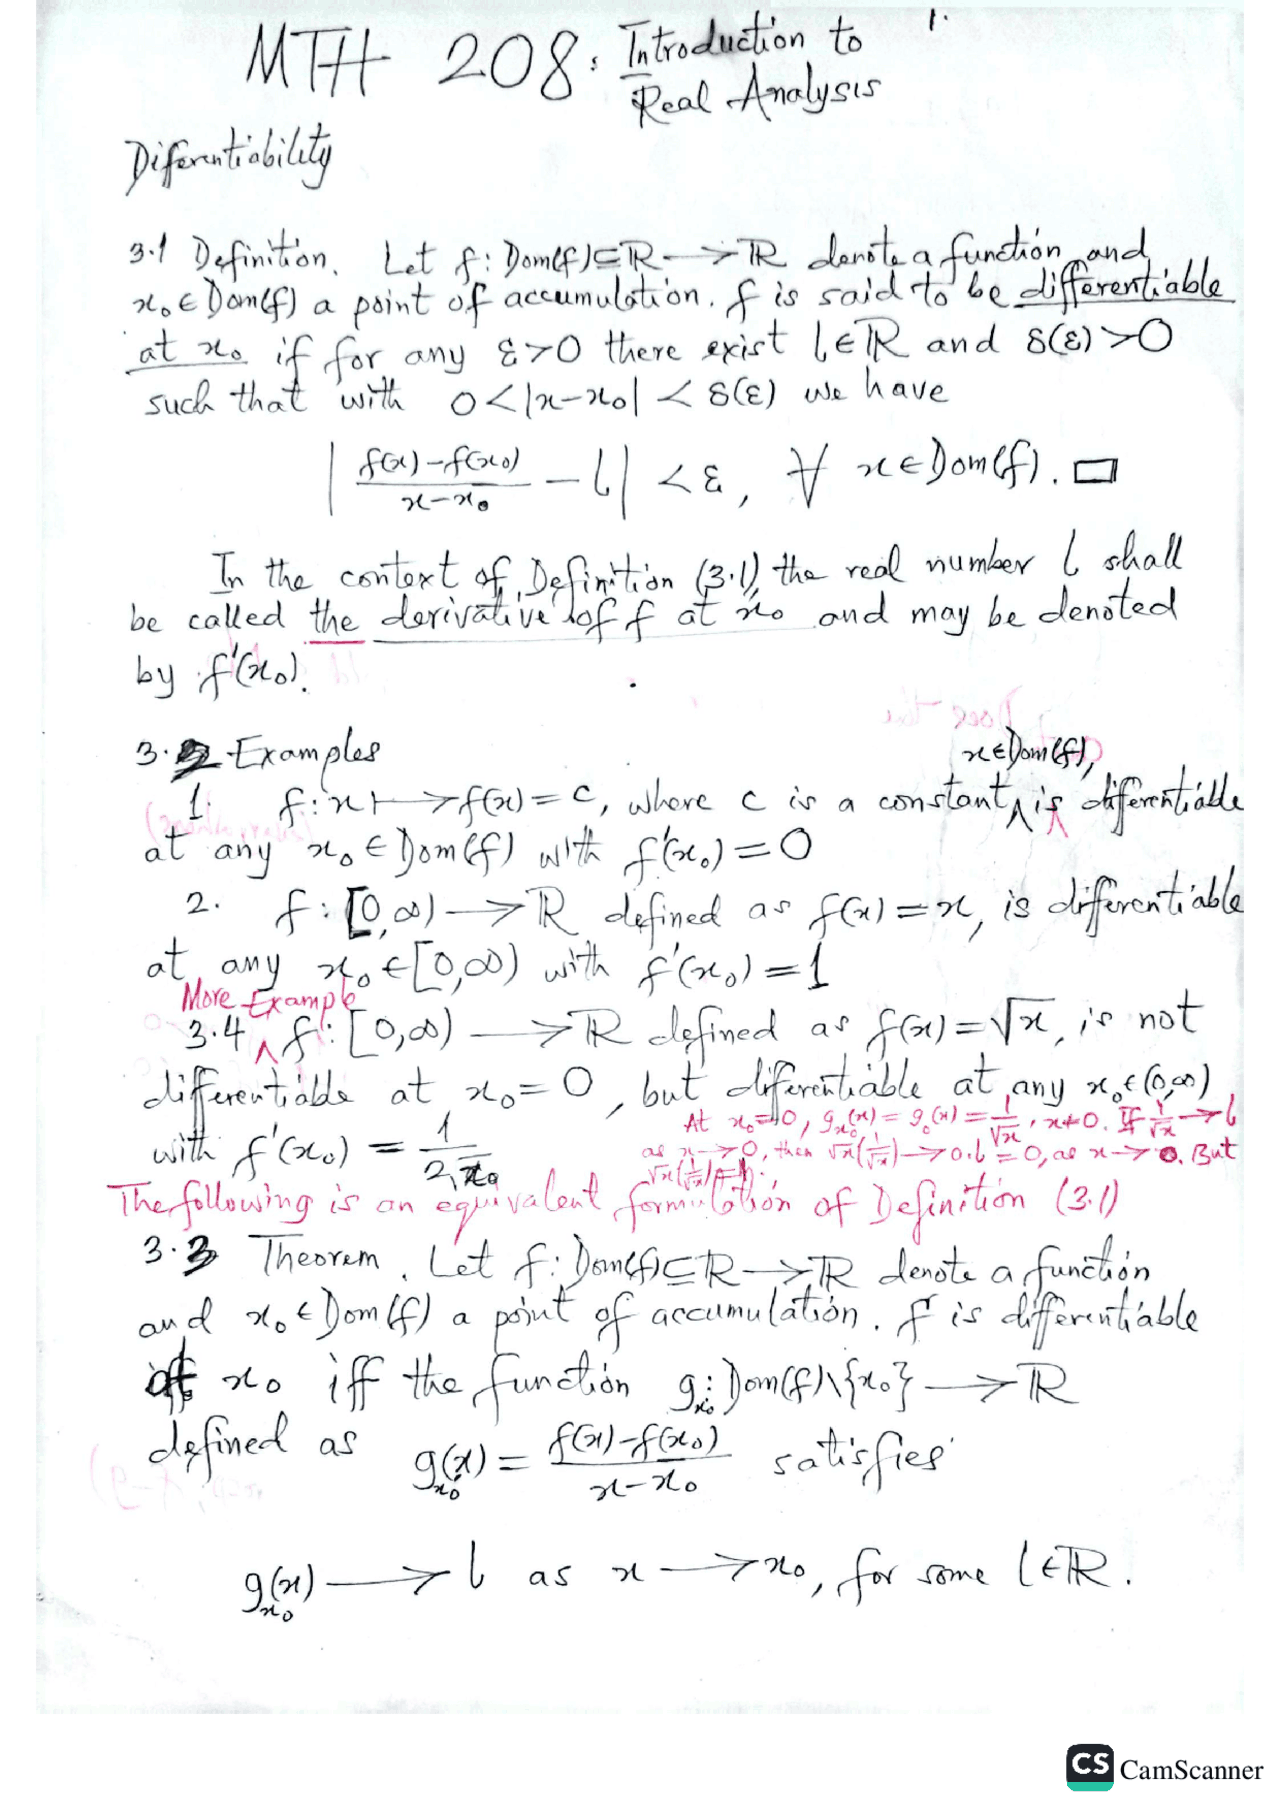 1.
MTH 208: Introduction to
Real Analysis
Diferentiability
3.1 Definition. Let f: Dom(f)⊆ℝ → ℝ denote a function and
x₀ ∈ Dom(f) a point of accumulation. f is said to be differentiable
at x₀ if for any ε>0 there exist l∈ℝ and δ(ε)>0
such that with 0<|x-x₀| < δ(ε) we have
| (f(x)-f(x₀))/(x-x₀) - l | < ε, ∀ x∈Dom(f). □
In the context of Definition (3.1), the real number l shall
be called the derivative of f at x₀ and may be denoted
by f'(x₀).
3.2 Examples
x∈Dom(f),
1. f: x ↦ f(x) = c, where c is a constant ^ is diferentiable
at any x₀ ∈ Dom(f) with f'(x₀) = 0
2. f: [0,∞) → ℝ defined as f(x) = x, is differentiable
at any x₀ ∈ [0,∞) with f'(x₀) = 1
More Example
3.4 ^ f: [0,∞) → ℝ defined as f(x) = √x, is not
differentiable at x₀ = 0, but diferentiable at any x₀ ∈ (0,∞)
with f'(x₀) = 1/(2√x₀)
At x₀=0, g_{x₀}(x) = g₀(x) = 1/√x, x≠0. If 1/√x → l
as x → 0, then √x(1/√x) → 0.l = 0, as x → 0. But
√x(1/√x)=1.
The following is an equivalent formulation of Definition (3.1)
3.3 Theorem. Let f: Dom(f)⊆ℝ → ℝ denote a function
and x₀ ∈ Dom(f) a point of accumulation. f is differentiable
at x₀ iff the function g_{x₀}: Dom(f)\{x₀} → ℝ
defined as g_{x₀}(x) = (f(x)-f(x₀))/(x-x₀) satisfies
g_{x₀}(x) → l as x → x₀, for some l∈ℝ.
CS CamScanner